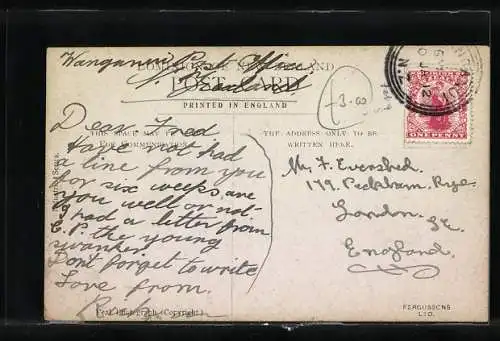 Wanganui Post Office
N. Zealand
DOMINION OF NEW ZEALAND
POST CARD
PRINTED IN ENGLAND
THIS SPACE MAY BE USED
FOR COMMUNICATION.
Dear Fred
Have not had
a line from you
for six weeks, are
you well or not.
I had a letter from
C.P. the young
swanker.
Dont forget to write
Love from.
THE ADDRESS ONLY TO BE
WRITTEN HERE.
Mr F. Evershed.
179. Peckham Rye.
London.
S.E.
England.
3.8
ONE PENNY
Real Photograph (Copyright.)
FERGUSSONS
LTD.